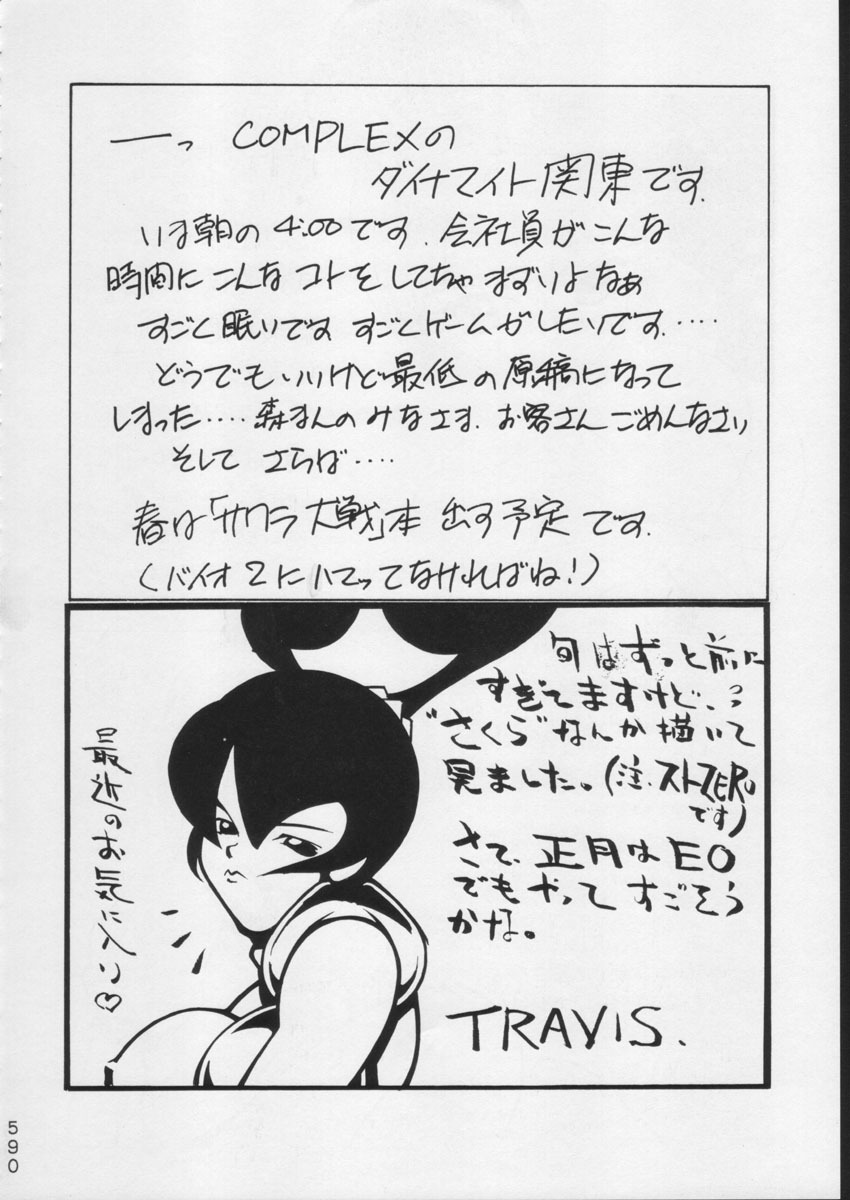 ーっ COMPLEXの
ダイナマイト関東です.
いま朝の4:00です.会社員がこんな
時間にこんなコトをしてちゃまずいよなぁ
すごく眠いです すごくゲームがしたいです....
どうでもいいけど最低の原稿になって
しまった....森まんのみなさま.お客さんごめんなさい
そして さらば....
春は「サクラ大戦」本 出す予定です.
(バイオ2にハマってなければね!)
旬はずっと前に
すぎてますけど、
"さくら"なんか描いて
見ました。(注.ストZERO
です)
さて、正月はEO
でもやってすごそう
かな。
TRAVIS.
最近のお気に入り♡
590